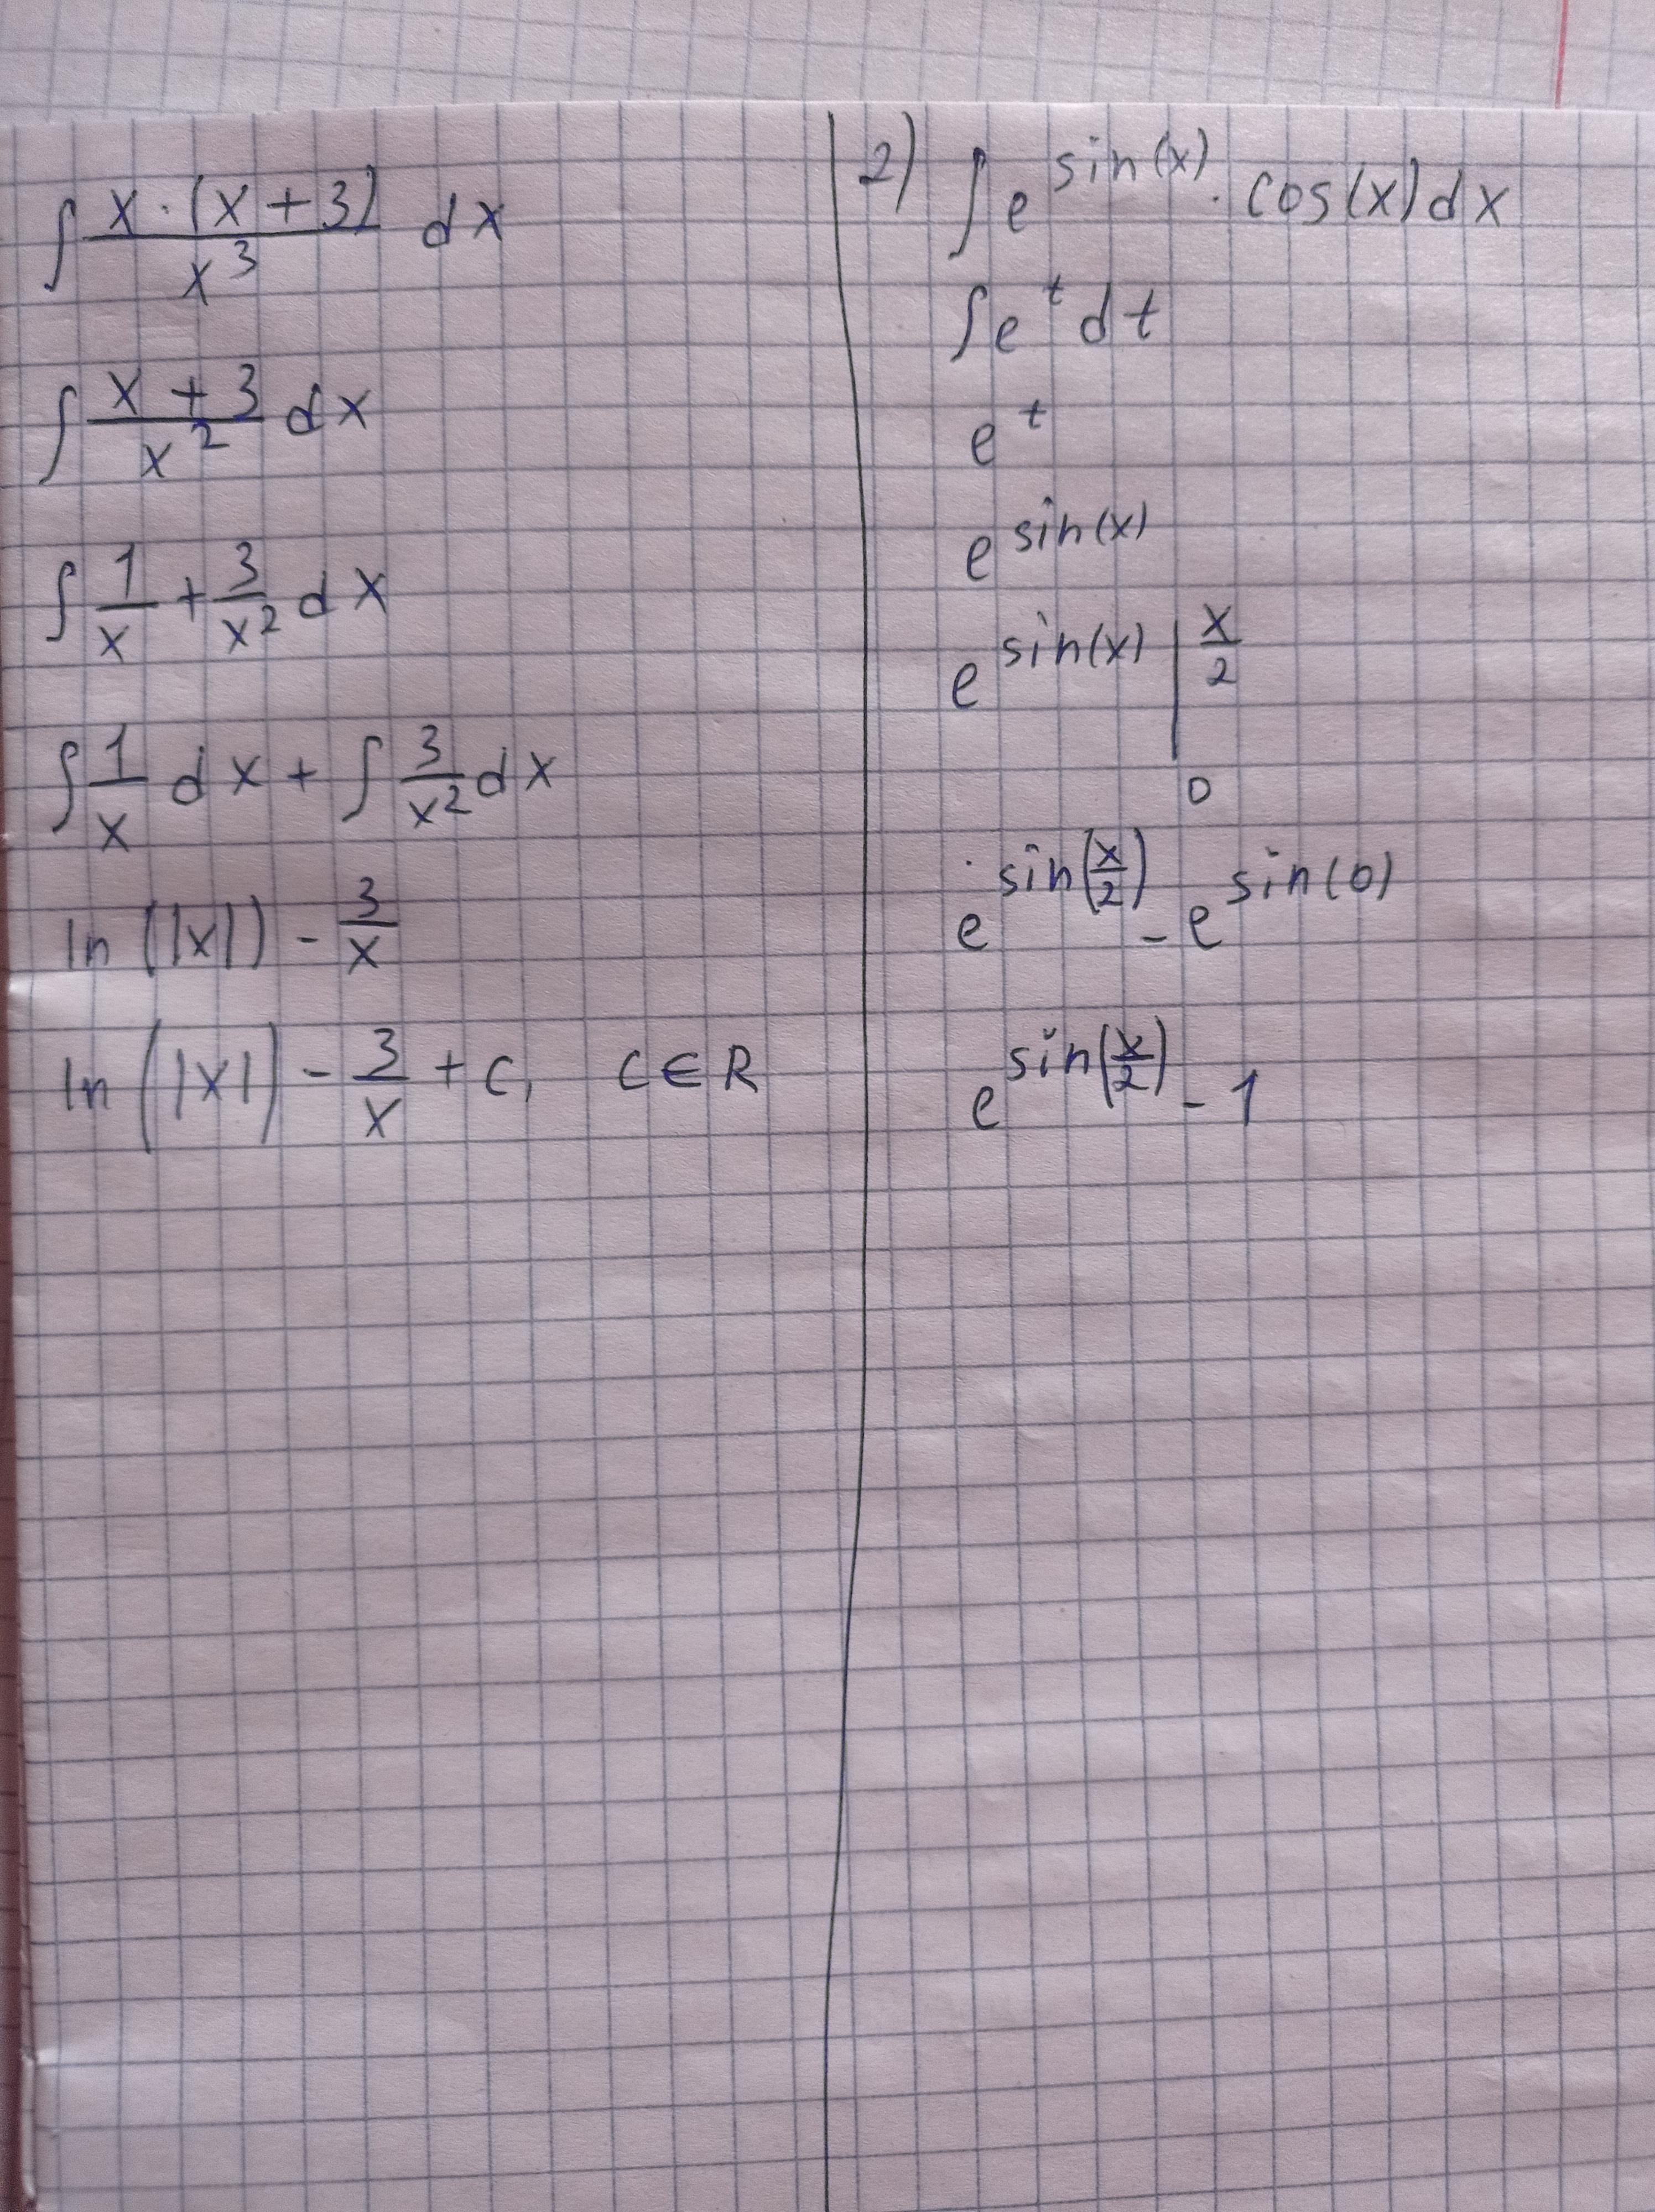 ∫ x·(x+3)/x³ dx
∫ x+3/x² dx
∫ 1/x + 3/x² dx
∫ 1/x dx + ∫ 3/x² dx
ln(|x|) - 3/x
ln(|x|) - 3/x + C, C ∈ R
2) ∫ e^sin(x) · cos(x) dx
∫ e^t dt
e^t
e^sin(x)
e^sin(x) | x/2
0
e^sin(x/2) - e^sin(0)
e^sin(x/2) - 1